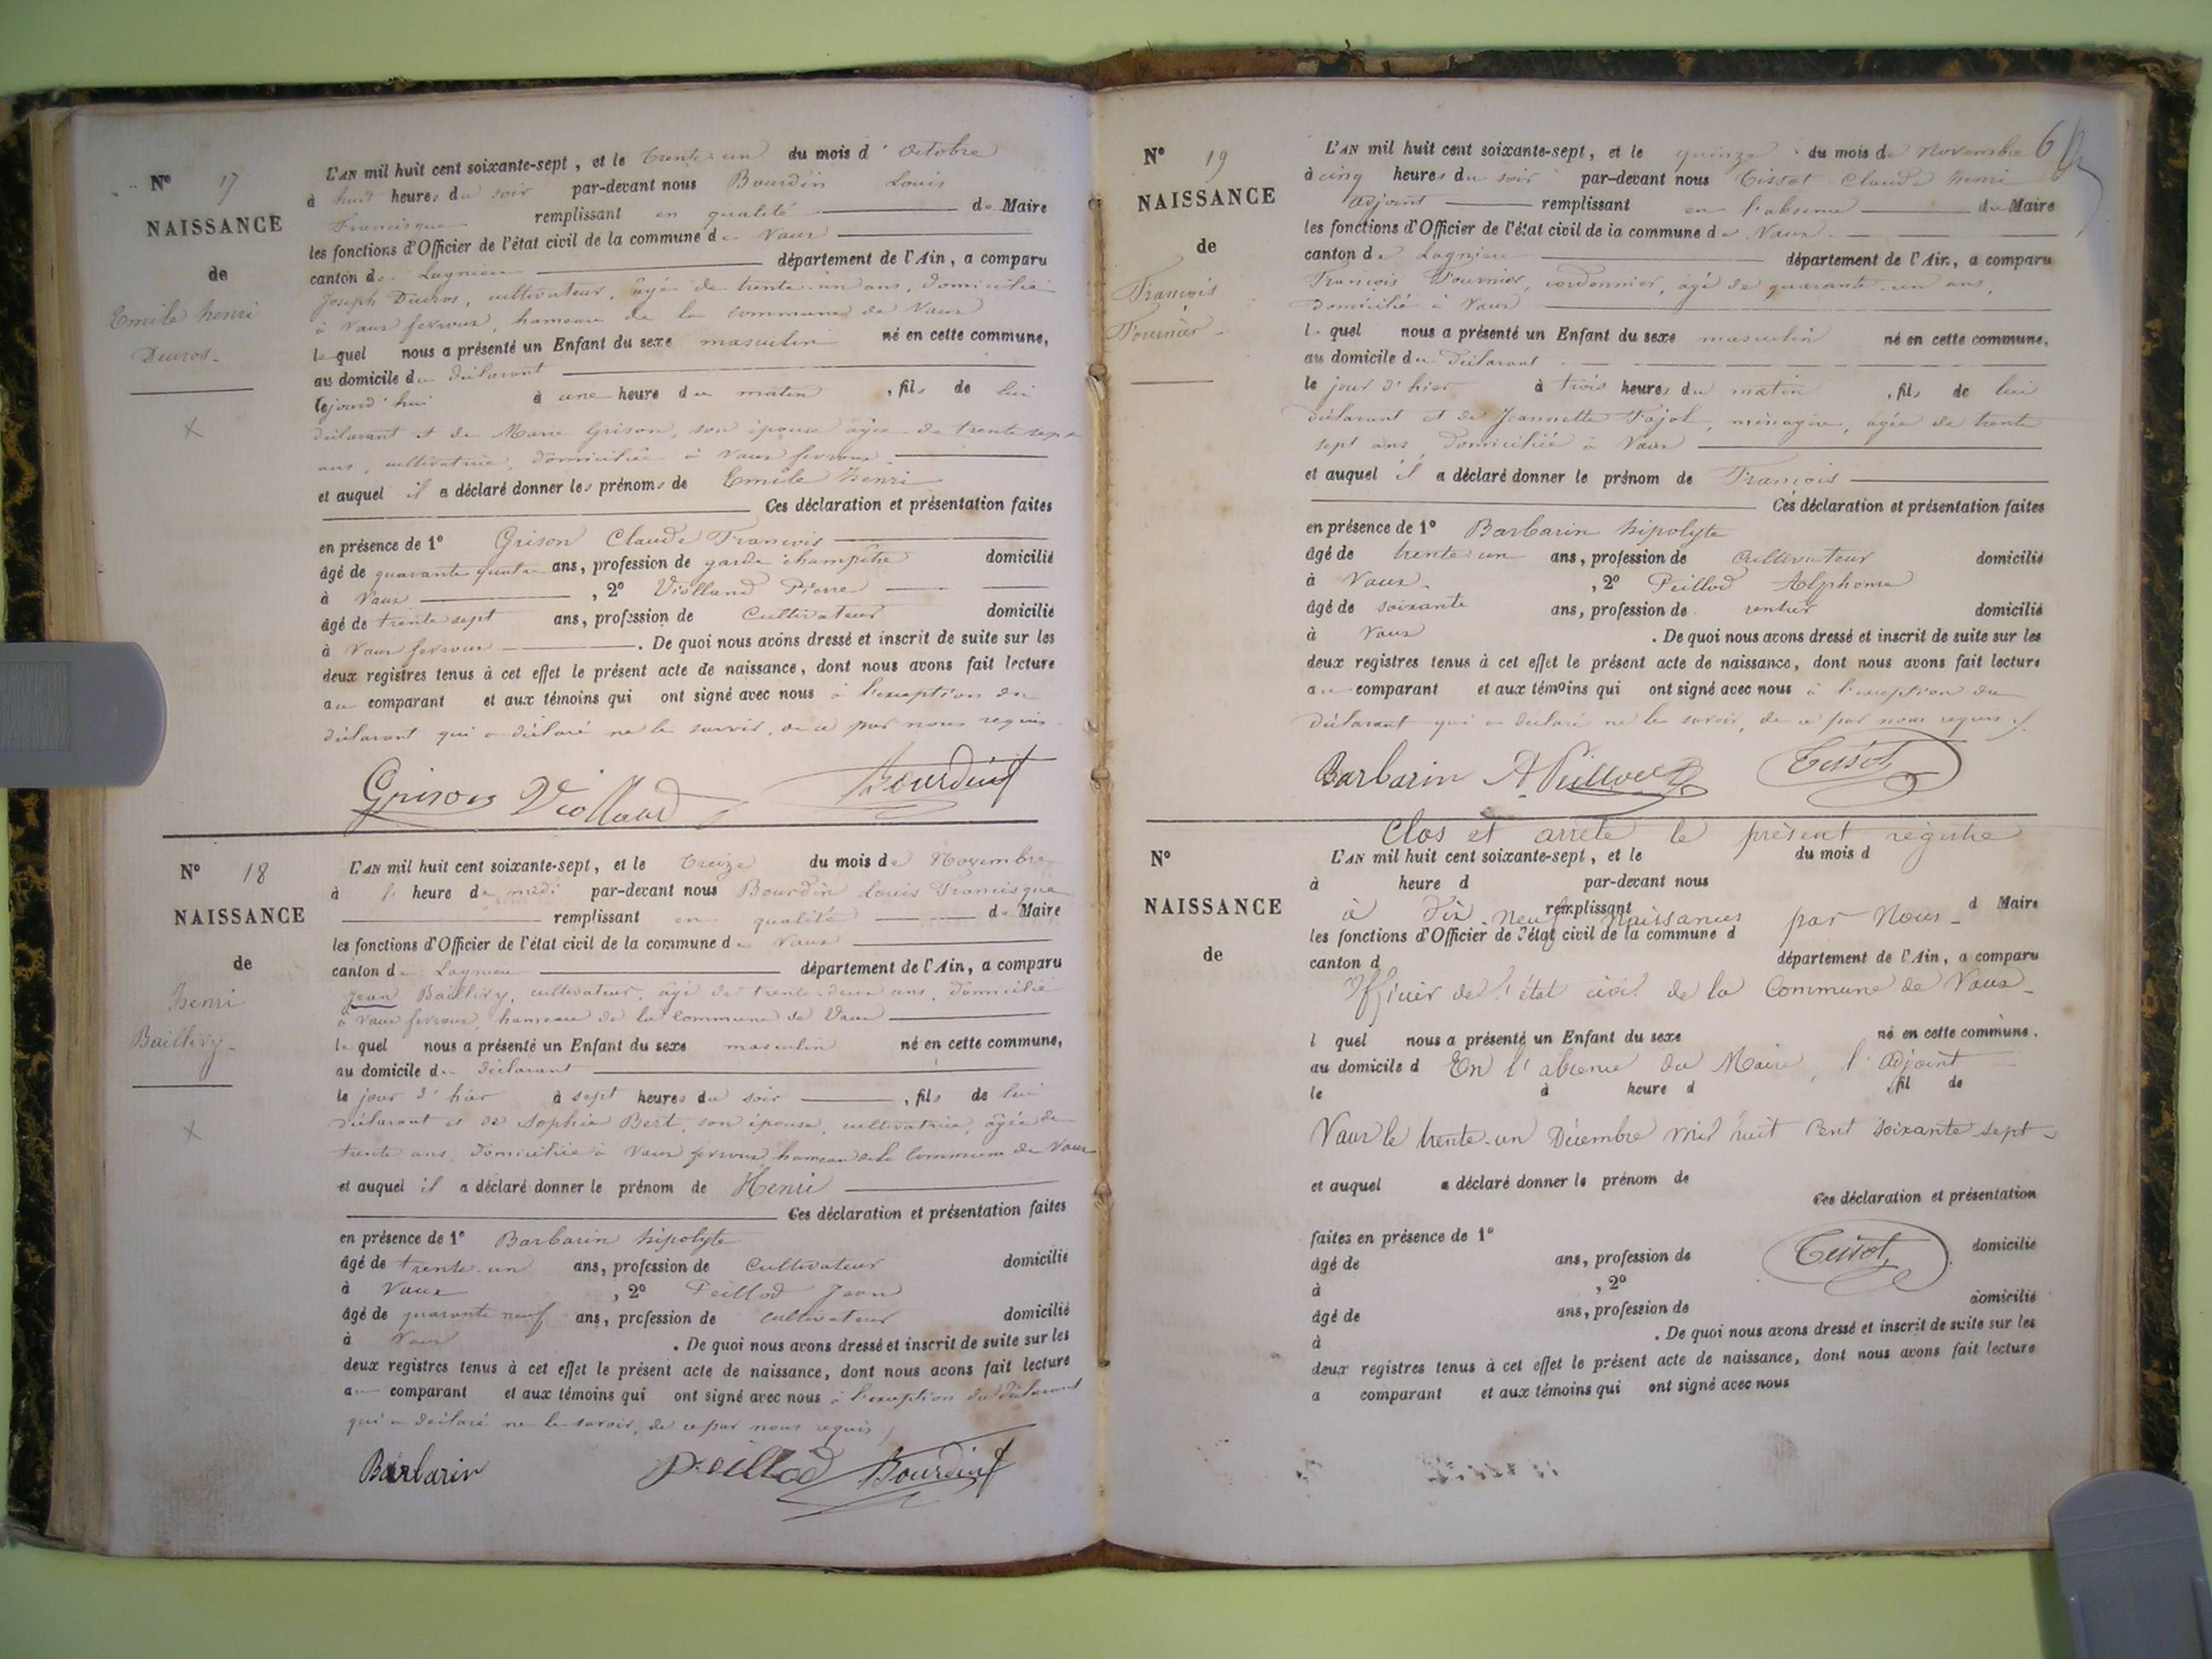 N° 17
NAISSANCE
de
Emile henri
Ducros.
L'AN mil huit cent soixante-sept, et le trente-un du mois d'Octobre
à huit heures du soir par-devant nous Bourdin Louis
Francisque remplissant en qualité de Maire
les fonctions d'Officier de l'état civil de la commune de Vaux
canton de Lagnieu département de l'Ain, a comparu
Joseph Ducros, cultivateur, âgé de trente-un ans, domicilié
à Vaux fevroux, hameau de la commune de Vaux
lequel nous a présenté un Enfant du sexe masculin né en cette commune,
au domicile du déclarant
lejourd'hui à une heure du matin, fils de lui
déclarant et de Marie Grison, son épouse âgée de trente sept
ans, cultivatrice, domiciliée à Vaux fevroux.
et auquel il a déclaré donner les prénoms de Emile henri
Ces déclaration et présentation faites
en présence de 1° Grison Claude François
âgé de quarante quatre ans, profession de garde champêtre domicilié
à Vaux, 2° Violland Pierre
âgé de trente sept ans, profession de Cultivateur domicilié
à Vaux fevroux. De quoi nous avons dressé et inscrit de suite sur les
deux registres tenus à cet effet le présent acte de naissance, dont nous avons fait lecture
au comparant et aux témoins qui ont signé avec nous à l'exception du
déclarant qui a déclaré ne le savoir, de ce par nous requis
Grison Violland Bourdin
N° 18
NAISSANCE
de
henri
Baillivy.
L'AN mil huit cent soixante-sept, et le treize du mois de Novembre
à l' heure de midi par-devant nous Bourdin Louis Francisque
remplissant en qualité de Maire
les fonctions d'Officier de l'état civil de la commune de Vaux
canton de Lagnieu département de l'Ain, a comparu
Jean Baillivy, cultivateur, âgé de trente-deux ans, domicilié
à Vaux fevroux, hameau de la commune de Vaux
lequel nous a présenté un Enfant du sexe masculin né en cette commune,
au domicile du déclarant
le jour d'hier à sept heures du soir, fils de lui
déclarant et de Sophie Bert, son épouse, cultivatrice, âgée de
trente ans, domiciliée à Vaux fevroux, hameau de la commune de Vaux
et auquel il a déclaré donner le prénom de Henri
Ces déclaration et présentation faites
en présence de 1° Barbarin hipolyte
âgé de trente-un ans, profession de Cultivateur domicilié
à Vaux, 2° Peillod Jean
âgé de quarante neuf ans, profession de cultivateur domicilié
à Vaux. De quoi nous avons dressé et inscrit de suite sur les
deux registres tenus à cet effet le présent acte de naissance, dont nous avons fait lecture
au comparant et aux témoins qui ont signé avec nous à l'exception du déclarant
qui a déclaré ne le savoir, de ce par nous requis
Barbarin Peillod Bourdin
N° 19
NAISSANCE
de
François
Fournier.
L'AN mil huit cent soixante-sept, et le quinze du mois de Novembre
à cinq heures du soir par-devant nous Tissot Claude henri
adjoint remplissant en l'absence du Maire
les fonctions d'Officier de l'état civil de la commune de Vaux
canton de Lagnieu département de l'Ain, a comparu
François Fournier, cordonnier, âgé de quarante-un ans,
domicilié à Vaux
lequel nous a présenté un Enfant du sexe masculin né en cette commune,
au domicile du déclarant
le jour d'hier à trois heures du matin, fils de lui
déclarant et de Jeannette Pajol, ménagère, âgée de trente
sept ans, domiciliée à Vaux
et auquel il a déclaré donner le prénom de François
Ces déclaration et présentation faites
en présence de 1° Barbarin hipolyte
âgé de trente-un ans, profession de Cultivateur domicilié
à Vaux., 2° Peillod Alphonse
âgé de soixante ans, profession de rentier domicilié
à Vaux. De quoi nous avons dressé et inscrit de suite sur les
deux registres tenus à cet effet le présent acte de naissance, dont nous avons fait lecture
au comparant et aux témoins qui ont signé avec nous à l'exception du
déclarant qui a déclaré ne le savoir, de ce par nous requis
Barbarin A. Peillod Tissot
Clos et arrêté le présent registre
N°
NAISSANCE
de
L'AN mil huit cent soixante-sept, et le du mois d
à heure d par-devant nous
remplissant d Maire
à dix-neuf naissances par Nous
les fonctions d'Officier de l'état civil de la commune d
canton d département de l'Ain, a comparu
Officier de l'état civil de la Commune de Vaux
l quel nous a présenté un Enfant du sexe né en cette commune.
au domicile d En l'absence du Maire, l'adjoint
le à heure d, fil de
Vaux le trente-un Décembre mil huit Cent Soixante-sept
et auquel a déclaré donner le prénom de
Ces déclaration et présentation
faites en présence de 1°
âgé de ans, profession de Tissot domicilié
à, 2°
âgé de ans, profession de domicilié
à. De quoi nous avons dressé et inscrit de suite sur les
deux registres tenus à cet effet le présent acte de naissance, dont nous avons fait lecture
a comparant et aux témoins qui ont signé avec nous